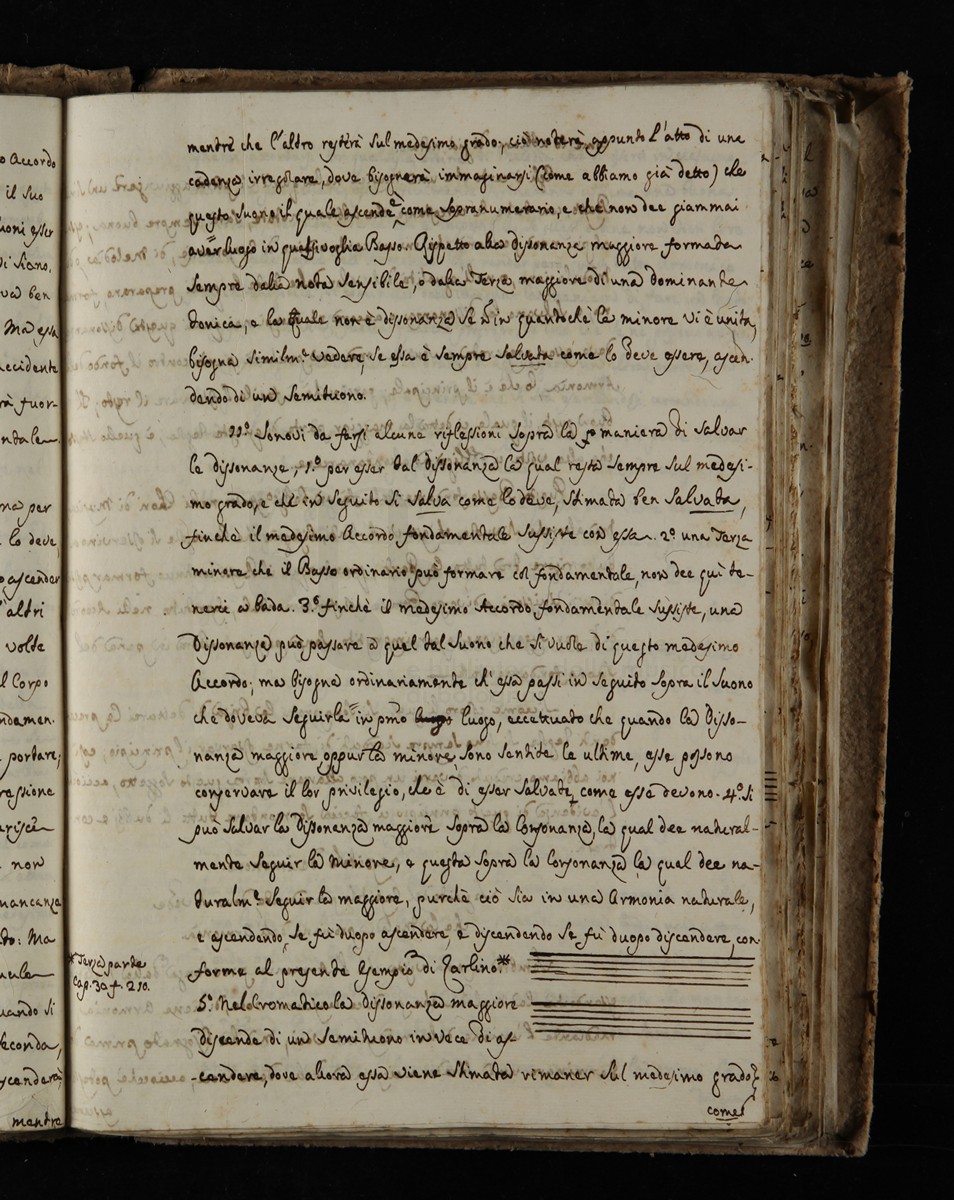 o Accordo
il suo
uoni esser
di siano,
va ben
Ma essa
ccidente
rà fuor-
ntale
ma per
lo deve,
o ascender
altri
volte
l Corpo
ndamen.
portare;
ressione
non
mancanza
to: Ma
uando si
seconda,
scenderà
mentre
mentre che l'altro resterà sul medesimo grado; ciò noterà appunto l'atto di una
cadenza irregolare, dove bisognerà immaginarsi (come abbiamo già detto) che
questo suono il quale ascende è come sopranumerario, e che non dee giammai
aver luogo in qualsivoglia Basso. Rispetto alla dissonanza maggiore formata
sempre dalla nota sensibile, o dalla Terza maggiore di una dominante
tonica, e la quale non è dissonanza se nõ in quantochè la minore vi è unita,
bisogna similm.e vedere, se essa è sempre salvata come lo deve essere, ascen-
dendo di un semituono.
11.o Sonovi da farsi alcune riflessioni sopra la maniera di salvar
le dissonanze; 1.o per esser tal dissonanza la qual resta sempre sul medesi-
mo grado, e che in seguito si salva come lo deve, stimata ben salvata,
finchè il medesimo Accordo fondamentale sussiste con essa. 2.o una Terza
minore che il Basso ordinario può formare col fondamentale, non dee quì te-
nerci a bada. 3.o finchè il medesimo Accordo fondamentale sussiste, una
Dissonanza può passare a quel tal suono che si vuole di questo medesimo
Accordo; ma bisogna ordinariamente ch'essa passi in seguito sopra il suono
che doveva seguirla in pmo luogo, eccetuato che quando la Disso-
nanza maggiore oppur la minore, sono sentite le ultime, esse possono
conservare il lor privilegio, che è di esser salvate come esse devono. 4.o Si
può salvar la Dissonanza maggiore sopra la Consonanza, la qual dee natural-
mente seguir la minore, e questa sopra la Consonanza la qual dee na-
turalm.e seguir la maggiore, purchè ciò sia in una Armonia naturale,
e ascendendo, se fù duopo ascendere, e discendendo se fù duopo discendere, con-
forme al presente Esempio di Zarlino.*
* Terza parte
Cap. 30 f. 210.
5.o Nel Cromatico la dissonanza maggiore
discende di un semituono invece di as-
-cendere, dove allora essa viene stimata rimaner sul medesimo grado,
come